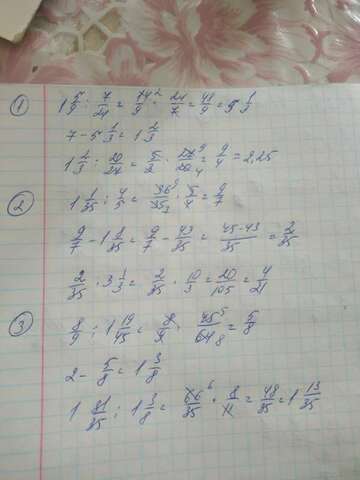 ① 1 5/9 : 7/24 = 14²/9 · 24/7 = 48/9 = 5 1/3
7 - 5 1/3 = 1 2/3
1 2/3 : 20/27 = 5/3 · 27⁹/20₄ = 9/4 = 2,25
② 1 1/35 : 4/5 = 36⁹/35₇ · 5/4 = 9/7
9/7 - 1 8/35 = 9/7 - 43/35 = 45-43/35 = 2/35
2/35 · 3 1/3 = 2/35 · 10/3 = 20/105 = 4/21
③ 8/9 : 1 19/45 = 8/9 · 45⁵/64₈ = 5/8
2 - 5/8 = 1 3/8
1 31/35 : 1 3/8 = 66⁶/35 · 8/11 = 48/35 = 1 13/35